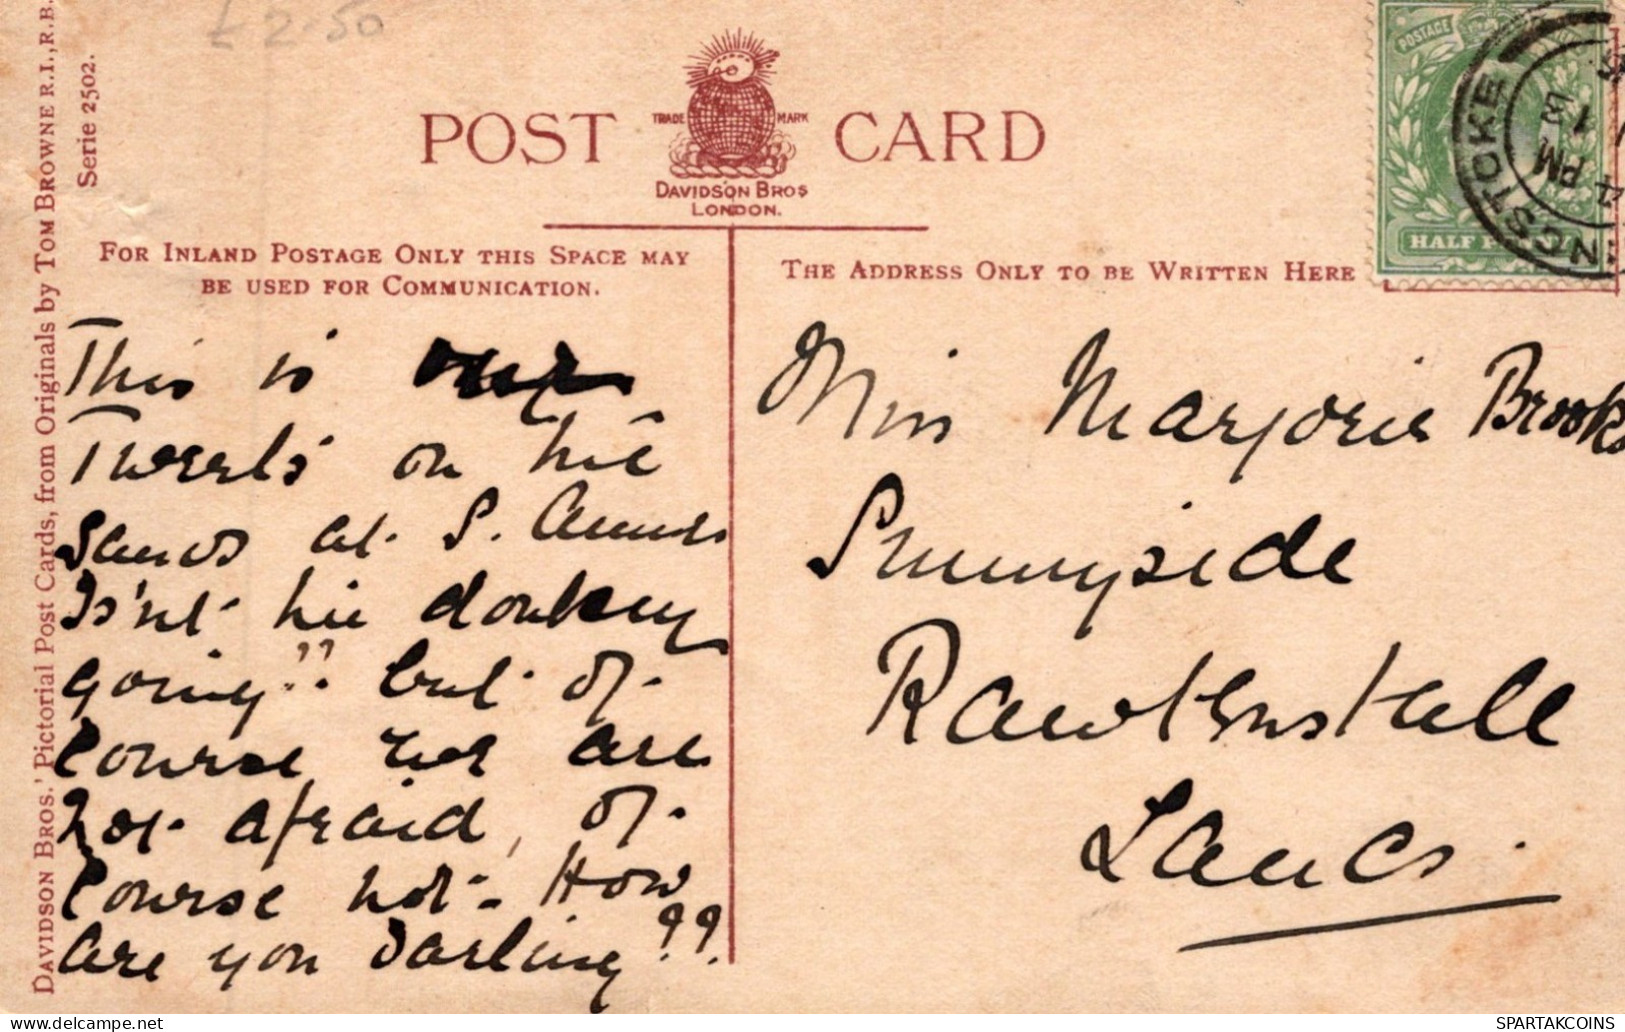 £2.50
DAVIDSON BROS.' Pictorial Post Cards, from Originals by TOM BROWNE R.I., R.B.
Serie 2502.
POST CARD
TRADE MARK
DAVIDSON BROS
LONDON.
FOR INLAND POSTAGE ONLY THIS SPACE MAY
BE USED FOR COMMUNICATION.
THE ADDRESS ONLY TO BE WRITTEN HERE
POSTAGE
HALF PENNY
NGSTOKE
4 PM
This is
on the
Sands at S. Annes
Is'nt he donkey
going?? but of
course are
not afraid, of
course not - How
are you Darling??
Miss Marjorie Brooks
Sunnyside
Rawtenstall
Lancs.
delcampe.net
SPARTAKCOINS